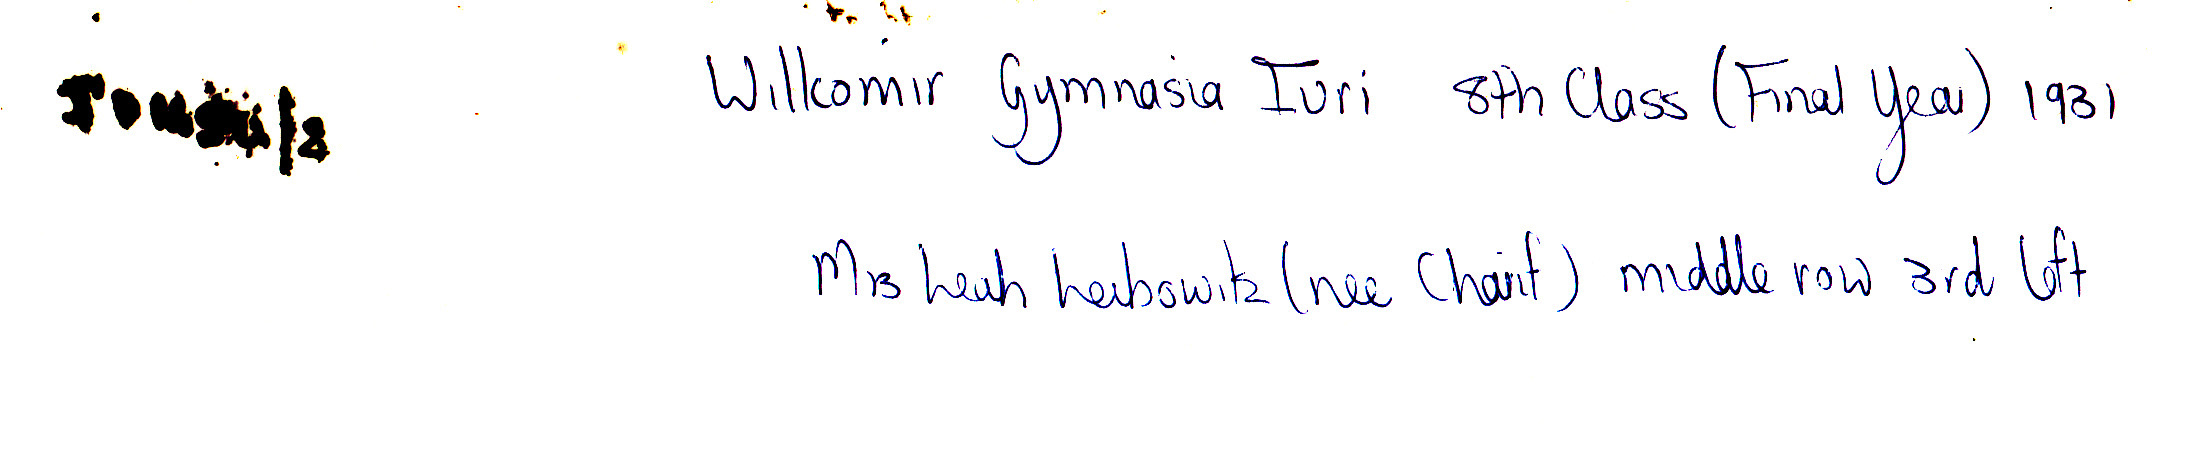 Willkomir Gymnasia Ivri 8th Class (Final Year) 1931
Mrs Leah Leibowitz (nee Charif) middle row 3rd left